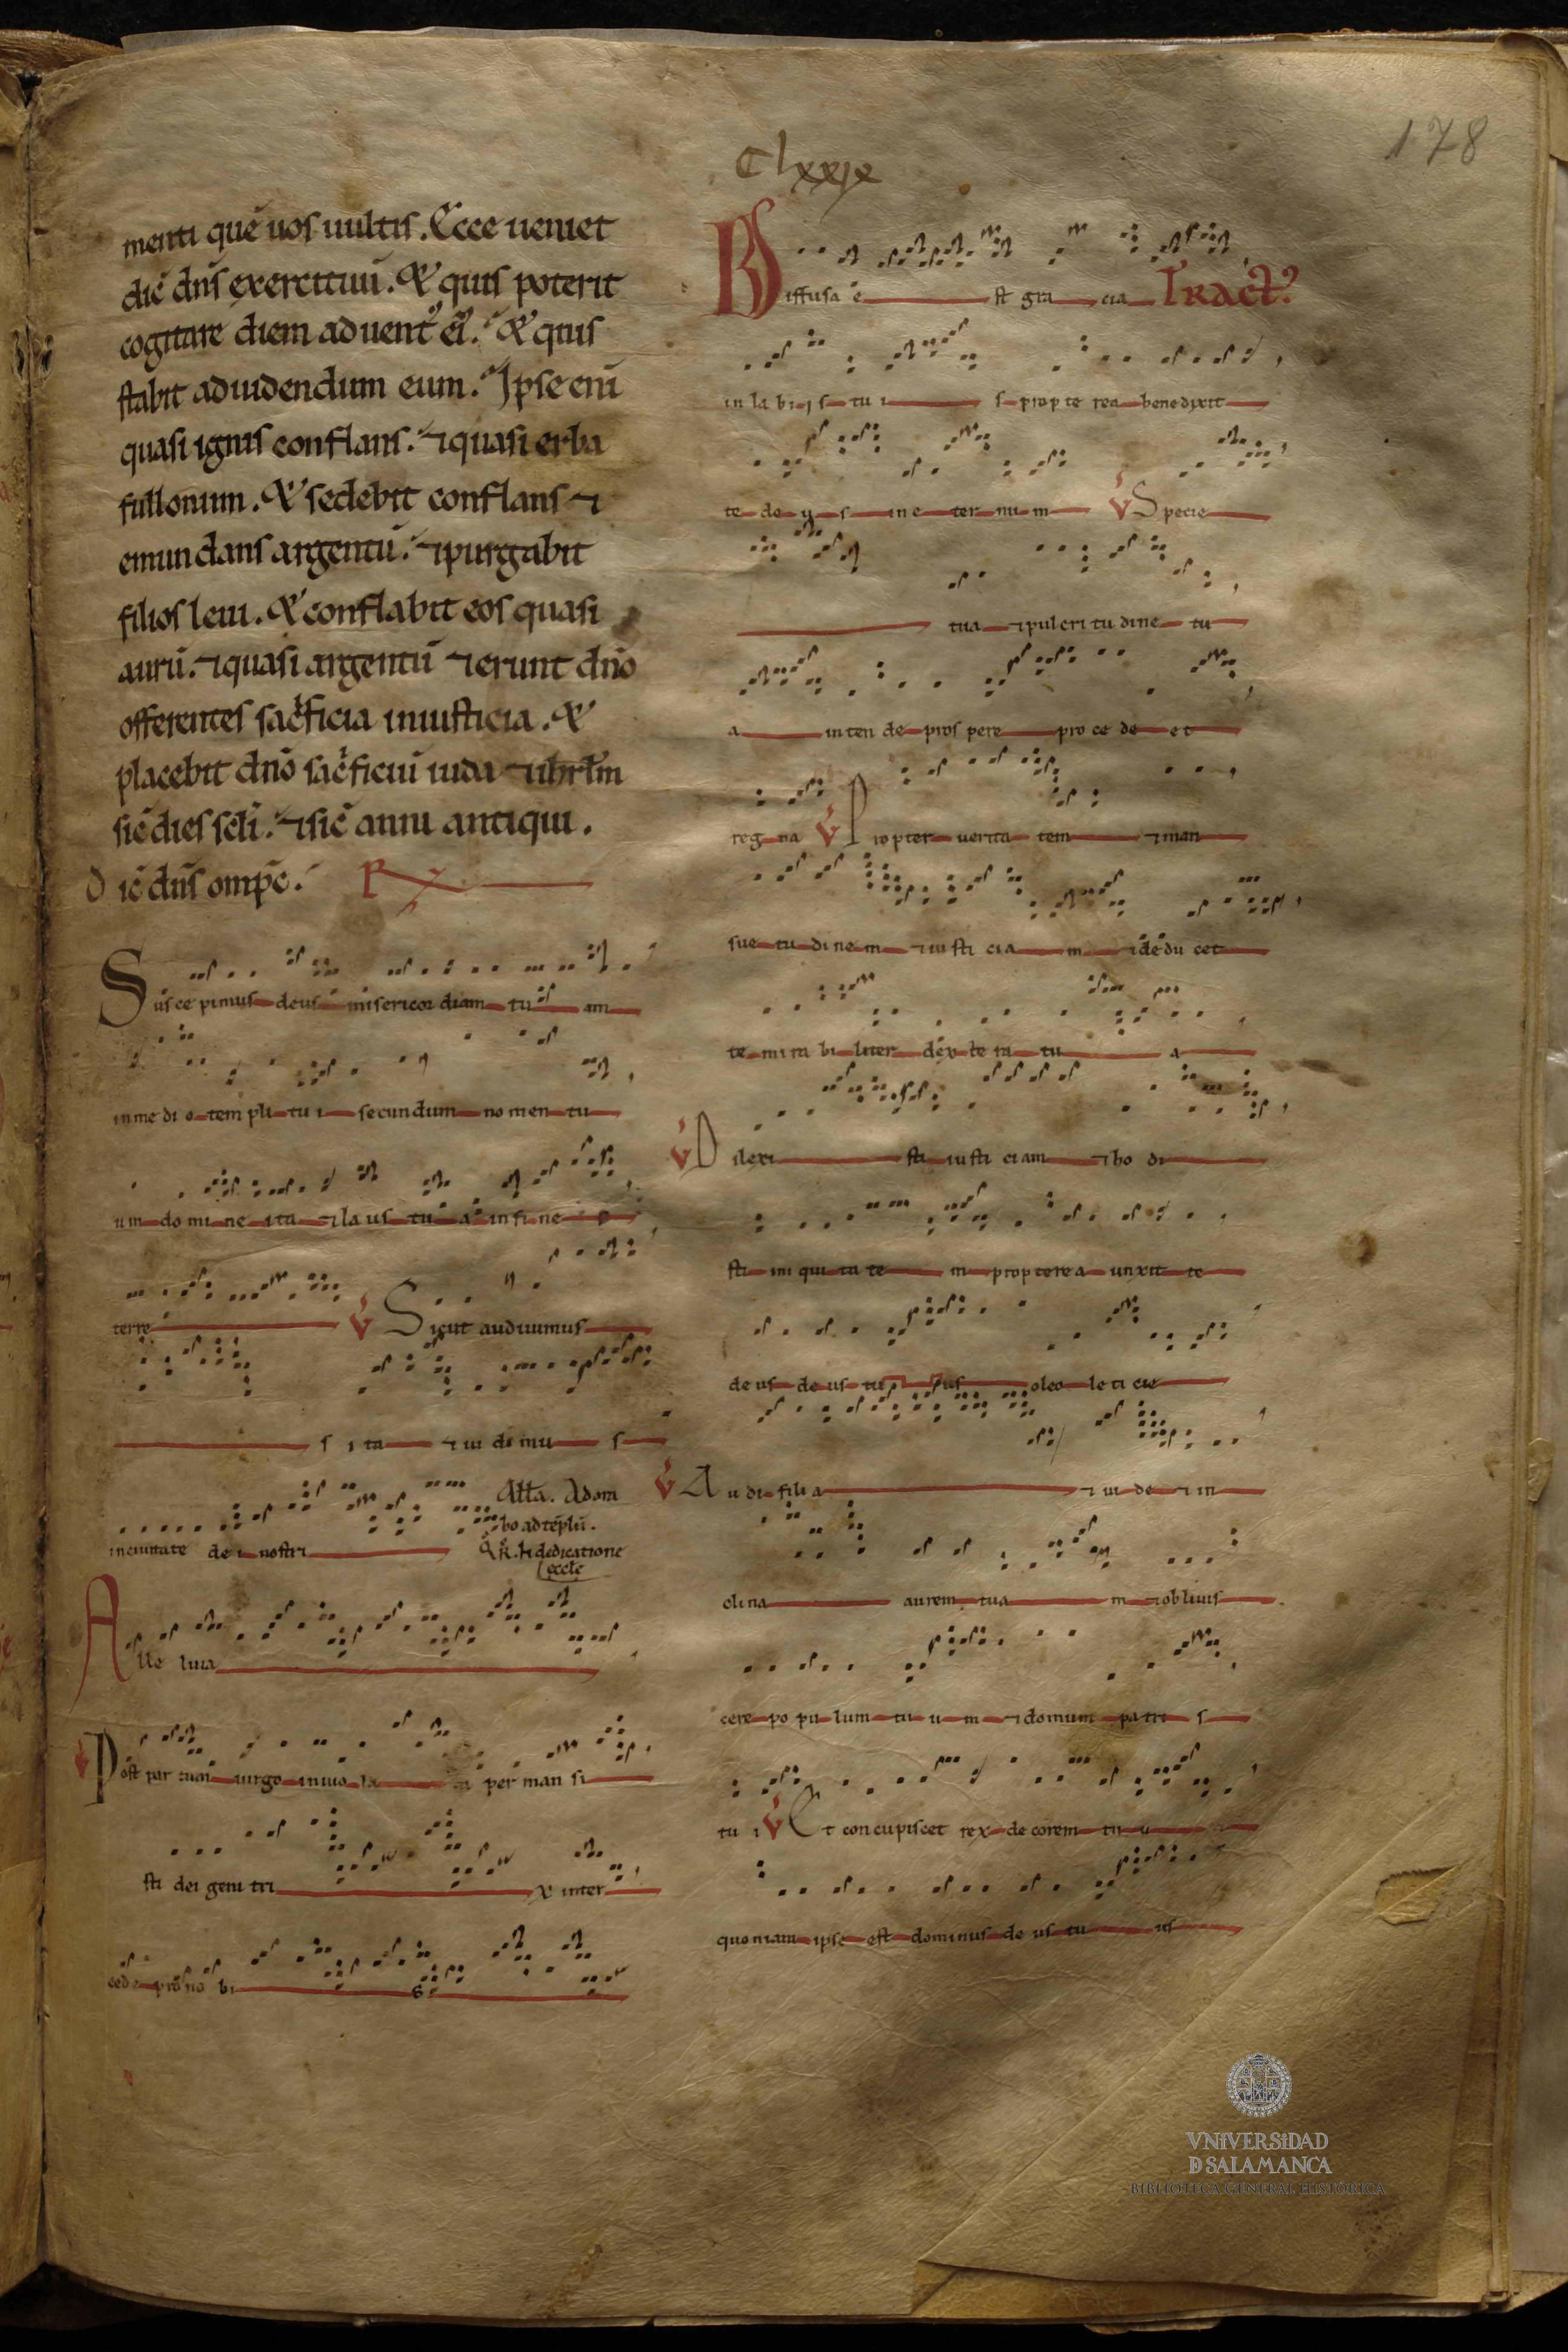 178
Clxxix
menti quē uos uultis. Ecce ueniet
dic̄ dn̄s exercituū. Et quis poterit
cogitare diem aduent᷒ ei᷒. Et quis
stabit aduidendum eum. Ipse eni
quasi ignis conflans. ⁊quasi erba
fullonum. Et sedebit conflans ⁊
emundans argentū. ⁊purgabit
filios leui. Et conflabit eos quasi
aurū. ⁊quasi argentū ⁊erunt dn̄o
offerentes sac̄ficia iniusticia. Et
placebit dn̄o sac̄ficiū iuda ⁊ihrl̄m
sic̄ dies scl̄i. ⁊sic̄ anni antiqui.
Dic̄ dn̄s omp̄c. R
Sus ce pimus deus misericor diam tu am
inme di o tem pli tu i secundum no men tu
um do mi ne ita ⁊la us tu a in fi ne
terre V Sicut audiuimus
s ita ⁊ui di mu s
inciuitate de i nostri All̄a. Adora
bo ad tēplū.
Q̄r. ī dedicatione
eccl̄e
Alle luia
V Post par tum uirgo inuio la ta per man si
sti dei geni tri x inter
cede pro no bi s
Diffusa e st gra cia Tract᷒
in la bi is tu i s prop te rea benedixit
te de us ine ter nu m V Specie
tua ⁊pulcri tu dine tu
a inten de pros pere pro ce de et
reg na V Propter uerita tem ⁊man
sue tu di ne m ⁊iu sti cia m ⁊de du cet
te mi ra bi liter dex te ra tu a
V Dilexi sti iusti ciam ⁊ho di
sti ini qui ta te m propterea unxit te
de us de us tu us oleo le ti cie
V Au di fili a ⁊ui de ⁊in
clina aurem tua m ⁊obliuis
cere po pu lum tu u m ⁊domum patri s
tu i V Et concupiscet rex de corem tu u
quoniam ipse est dominus de us tu us
VNiVERSiDAD
D SALAMANCA
BIBLIOTECA GENERAL HISTÓRICA